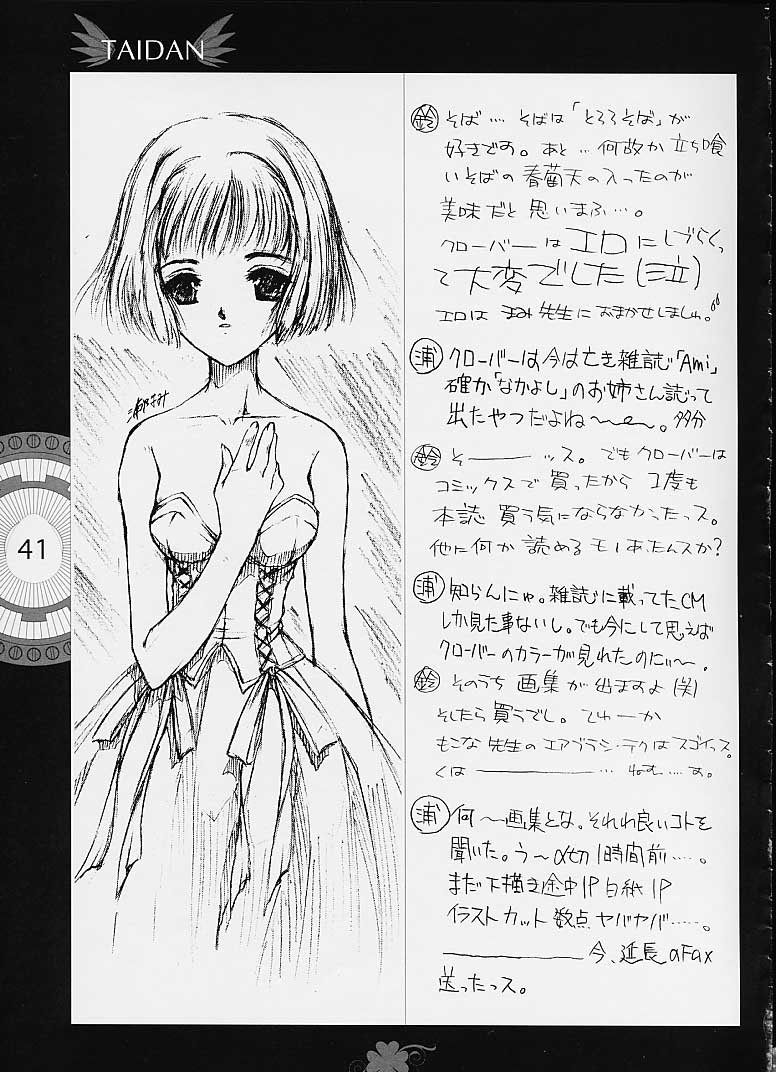 TAIDAN
鈴 そば… そばは「とろろそば」が
好きです。あと… 何故か 立ち喰
いそばの 春菊天の入ったのが
美味だと 思いまふ…。
クローバーは エロにしづらくっ
て大変でした(泣)
エロは まみ先生におまかせしましゅ。
浦 クローバーは今は亡き雑誌「Ami」
確か「なかよし」のお姉さん誌って
出たやつだよね〜。多分
鈴 そ――ッス。でもクローバーは
コミックスで 買ったから 1度も
本誌 買う気にならなかったっス。
他に何か 読めるモノあったんスか?
浦 知らんにゅ。雑誌に載ってたCM
しか見た事ないし。でも今にして思えば
クローバーのカラーが見れたのにぃ〜。
鈴 そのうち 画集が出ますよ(笑)
そしたら買うでし。てゆーか
もこな先生のエアブラシ・テクはスゴイっス。
くは――――…
浦 何〜画集とな。それわ良いコトを
聞いた。う〜〆切1時間前……。
まだ下描き途中1P白紙1P
イラストカット数点ヤバヤバ……。
――――今、延長のFax
送ったっス。
41